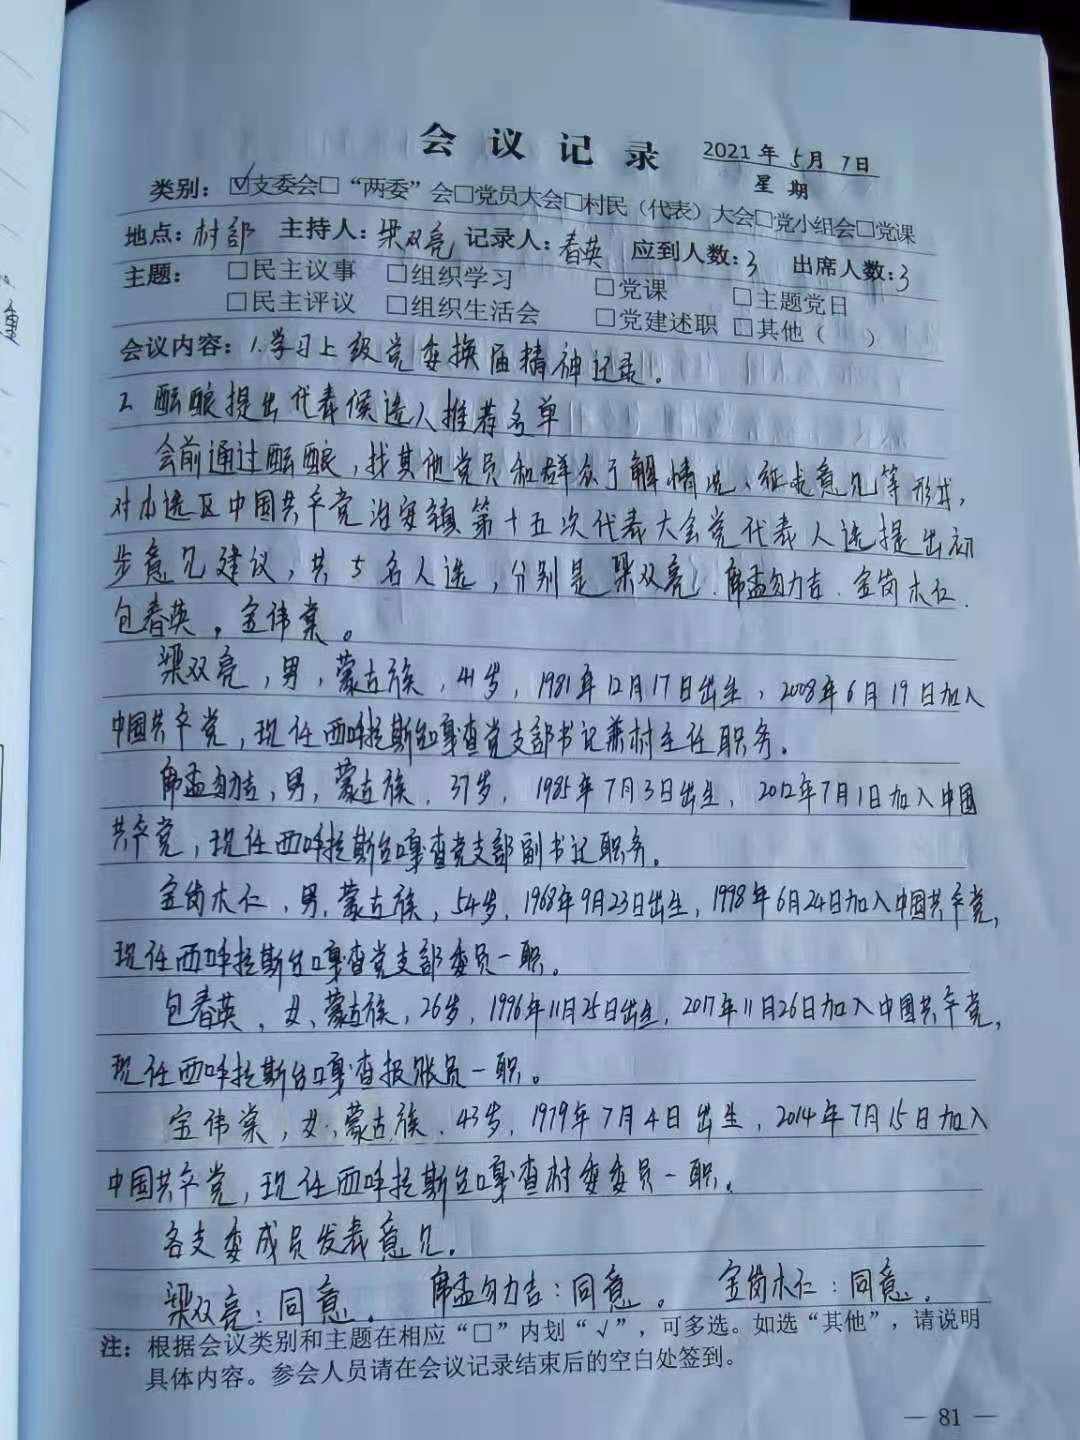 会议记录 2021年5月7日
星期
类别：☑支委会□“两委”会□党员大会□村民（代表）大会□党小组会□党课
地点：村部 主持人：梁双亮 记录人：春英 应到人数：3 出席人数：3
主题： □民主议事 □组织学习 □党课 □主题党日
□民主评议 □组织生活会 □党建述职 □其他（ ）
会议内容：1.学习上级党委换届精神记录。
2.酝酿提出代表候选人推荐名单
会前通过酝酿，找其他党员和群众了解情况、征求意见等形式，
对本选区中国共产党治安镇第十五次代表大会党代表人选提出初
步意见建议，共5名人选，分别是梁双亮、席孟勿力吉、宝岗木仁、
包春英，宝伟棠。
梁双亮，男，蒙古族，41岁，1981年12月17日出生，2008年6月19日加入
中国共产党，现任西呼拉斯台嘎查党支部书记兼村主任职务。
席孟勿力吉，男，蒙古族，37岁，1985年7月3日出生，2012年7月1日加入中国
共产党，现任西呼拉斯台嘎查党支部副书记职务。
宝岗木仁，男，蒙古族，54岁，1968年9月23日出生，1998年6月24日加入中国共产党，
现任西呼拉斯台嘎查党支部委员一职。
包春英，女、蒙古族，26岁，1996年11月25日出生，2017年11月26日加入中国共产党，
现任西呼拉斯台嘎查报账员一职。
宝伟棠，女，蒙古族，43岁，1979年7月4日出生，2014年7月15日加入
中国共产党，现任西呼拉斯台嘎查村委委员一职。
各支委成员发表意见。
梁双亮：同意。 席孟勿力吉：同意。 宝岗木仁：同意。
注：根据会议类别和主题在相应“□”内划“√”，可多选。如选“其他”，请说明
具体内容。参会人员请在会议记录结束后的空白处签到。
— 81 —